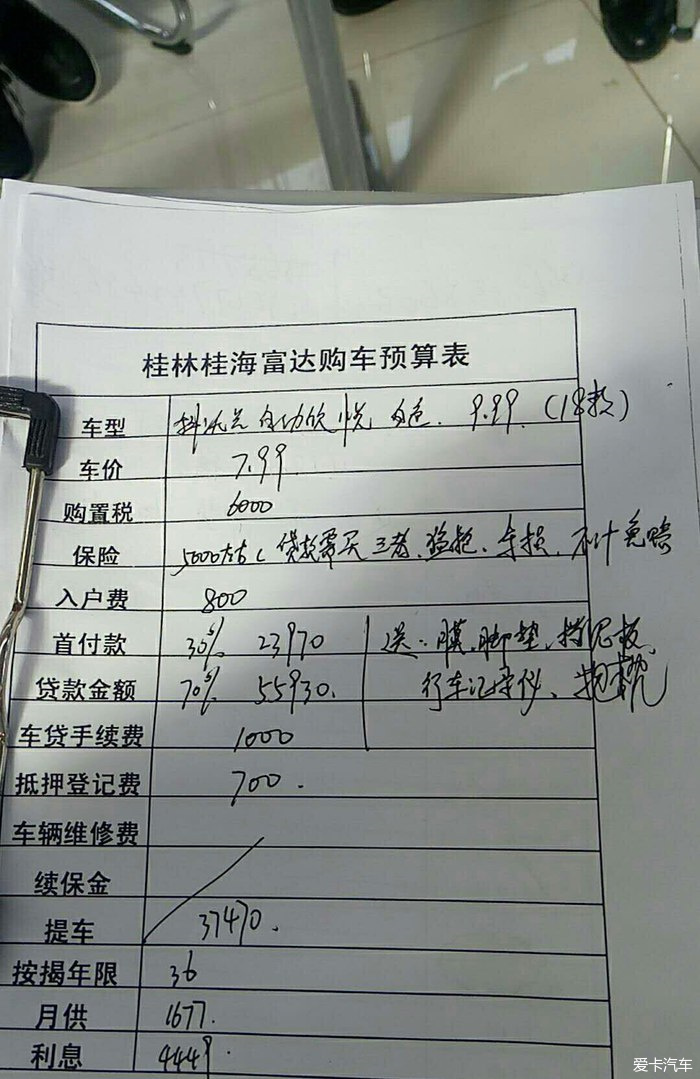 桂林桂海富达购车预算表
车型 科沃兹 自动欣悦 白色. 9.99. (18款)
车价 7.99
购置税 6000
保险 5000左右(贷款需买三者、盗抢、车损、不计免赔
入户费 800
首付款 30% 23970 送:膜、脚垫、挡泥板、
贷款金额 70% 55930. 行车记录仪、抱枕
车贷手续费 1000
抵押登记费 700.
车辆维修费
续保金
提车 37470.
按揭年限 36
月供 1677.
利息 4449.
爱卡汽车